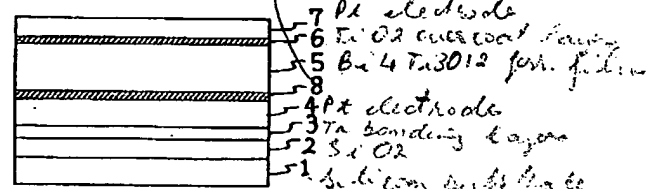 7 Pt electrode
6 TiO2 overcoat layer
5 Bi4Ti3O12 ferr. film
8
4 Pt electrodes
3 Ta bonding layers
2 SiO2
1 Silicon substrate